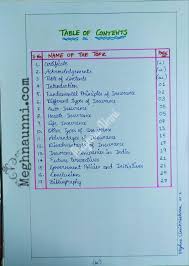 TABLE OF CONTENTS
S.No. NAME OF THE TOPIC PAGE
1. Certificate (i)
2. Acknowledgements (ii)
3. Table of Contents (iii)
4. Introduction 01
5. Fundamental Principles of Insurance
6. Different Types of Insurance
7. Auto Insurance
8. Health Insurance
9. Life Insurance
10. Other Types of Insurance
11. Advantages of Insurance
12. Disadvantages of Insurance
13. Insurance Companies in India
14. Future Perspectives
15. Government Policies and Initiatives
16. Conclusion
17. Bibliography
Meghnaunni.com